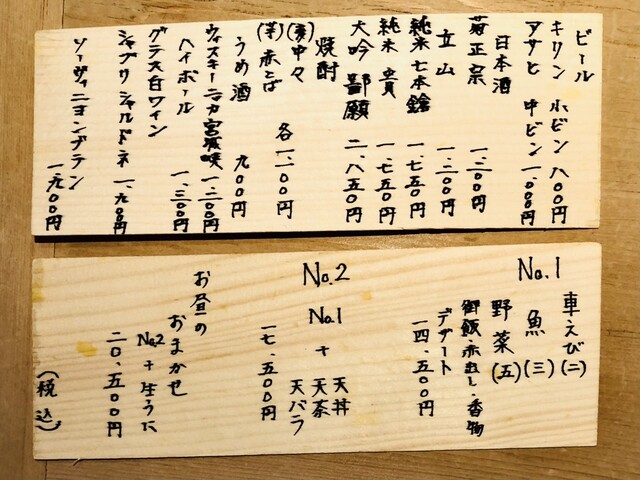 ビール
キリン 小ビン 八〇〇円
アサヒ 中ビン 一、〇〇〇円
日本酒
菊正宗 一、二〇〇円
立山 一、二〇〇円
純米 七本鎗 一、七五〇円
純米 貴 一、七五〇円
大吟 鄙願 二、八五〇円
焼酎
(麦)中々
(芋)赤とば 各一、一〇〇円
うめ酒 九〇〇円
ウィスキー ニッカ 宮城峡 一、二〇〇円
ハイボール 一、三〇〇円
グラス白ワイン
シャブリ シャルドネ 一、九〇〇円
ソーヴィニヨンブラン
一、九〇〇円
No.1
車えび(二)
魚(三)
野菜(五)
御飯・赤出し・香物
デザート
一四、五〇〇円
No.2
No.1 + 天丼
天茶
天バラ
一七、五〇〇円
お昼の
おまかせ
No.2 + 生うに
二〇、五〇〇円
(税込)